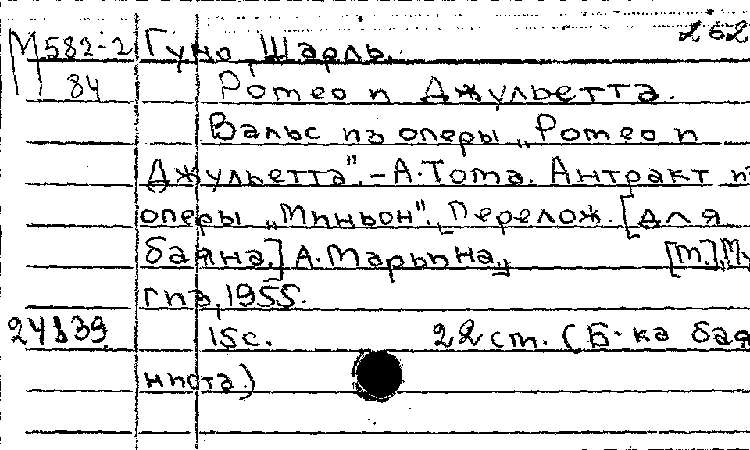 262
М582-2 Гуно, Шарль.
84 Ромео и Джульетта.
Вальс из оперы „Ромео и
Джульетта".-А.Тома. Антракт из
оперы „Миньон". Перелож. [для
баяна.] А.Марьина. [М.], Му
гиз, 1955.
24839 15с. 22 ст. (Б-ка бая
ниста.)